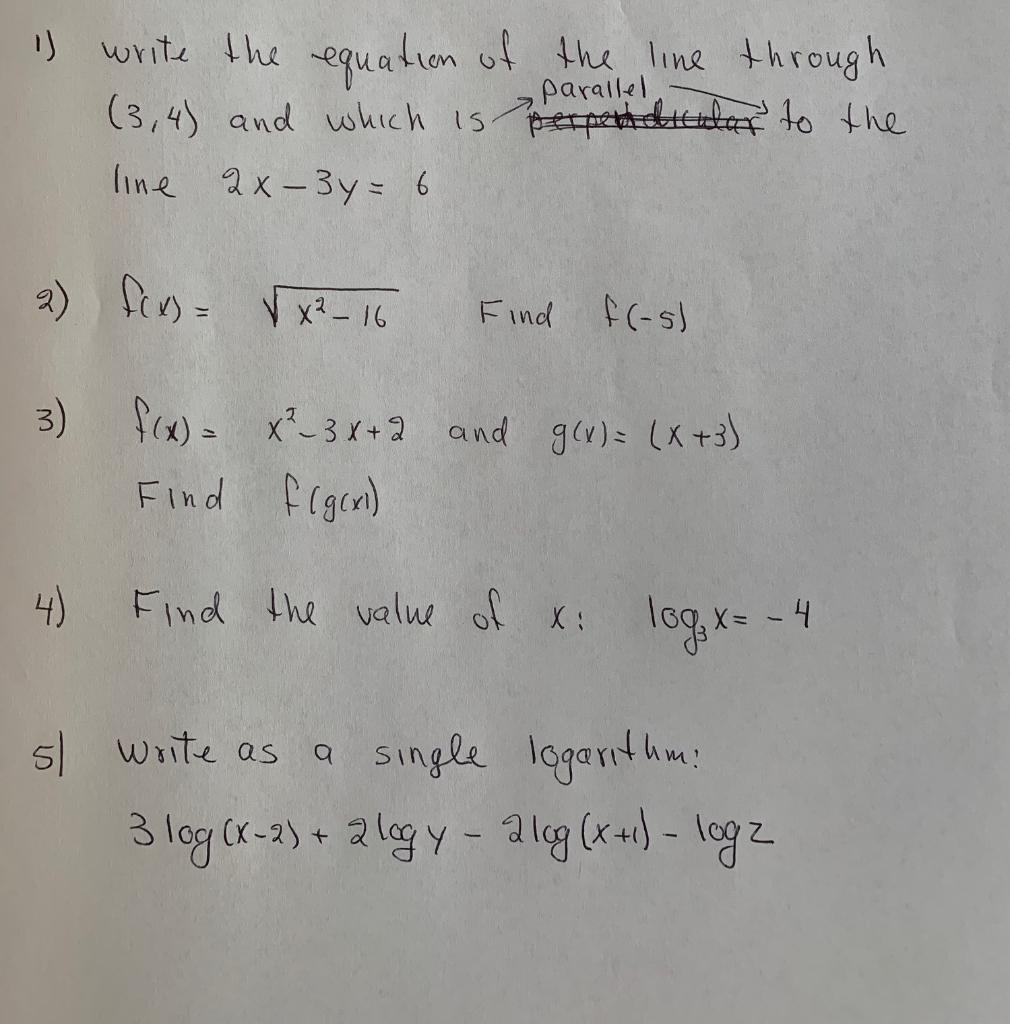 1) write the equation of the line through
parallel
(3,4) and which is perpendicular to the
line 2x - 3y = 6
2) f(x) = √x² - 16 Find f(-5)
3) f(x) = x² - 3x + 2 and g(x) = (x + 3)
Find f(g(x))
4) Find the value of x: log₃ x = - 4
5) Write as a single logarithm:
3 log (x-2) + 2 log y - 2 log (x+1) - log z